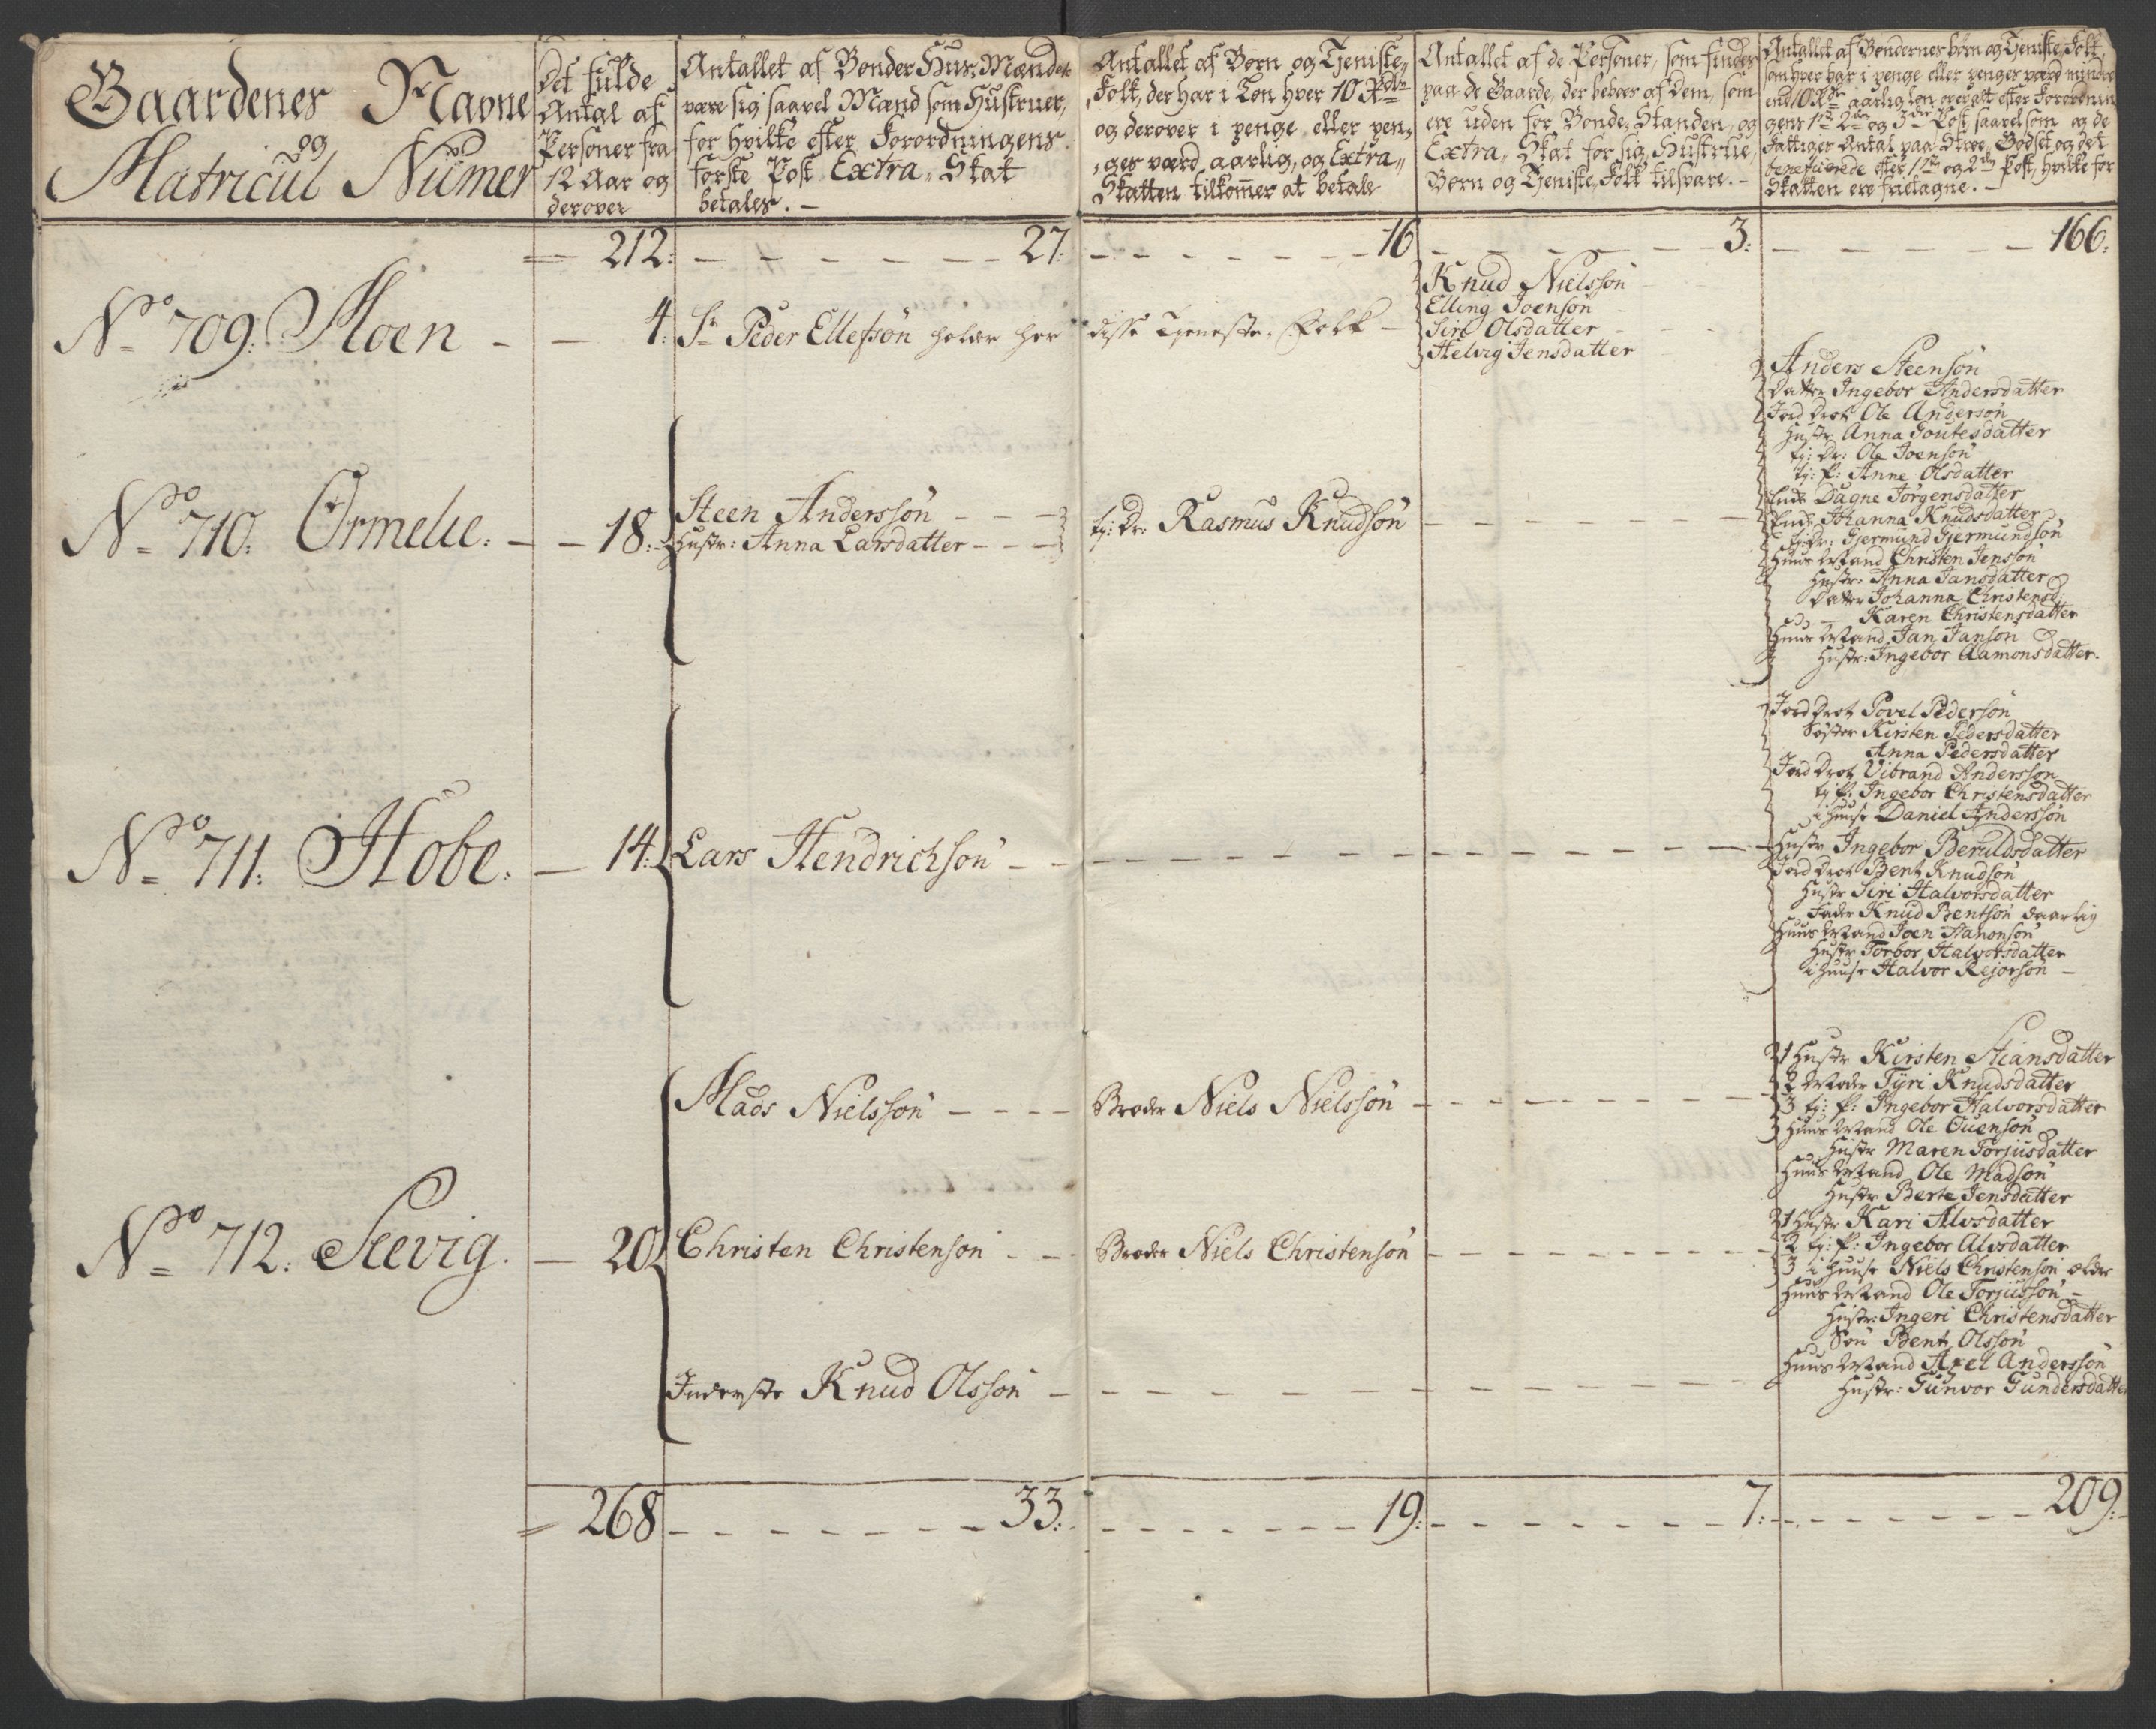 Gaardenes Navne
og
Matricul Numer
Det fulde
Antal af
Personer fra
12 Aar og
derover
Antallet af Bønder Hus-Mænder
være sig saavel Mænd som Hustruer,
for hvilke efter Forordningens
første Post Extra-Skat
betales. —
Antallet af Børn og Tjeniste-
Folk, der har i Løn hver 10 Rdlr
og derover i penge, eller pen-
ges værd aarlig, og Extra-
Skatten tilkom̄er at betale
Antallet af de Personer, som findes
paa de Gaarde, der beboes af Dem, som
ere uden for Bonde-Standen, og
Extra-Skat for sig, Hustrue,
Børn og Tjeniste-Folk tilsvare. —
Antallet af Bøndernes børn og Tjeniste Folk,
som hver har i penge eller penges værd mindre
end 10 Rdr aarlig løn overalt efter Forordnin
gens 1ste 2den og 3die Post saavelsom og de
Fattiges Antal paa Strøe-Godset og det
beneficerede efter 1ste og 2den Post, hvilke for
Skatten ere fritagne. —
212: — 27: — 16 — 3: — 166:
No 709. Moen — 4. Sr Peder Ellefsøn holder her disse Tjeneste-Folk —
Knud Nielssøn
Elling Joensøn
Siri Olsdatter
Helvig Jensdatter
No 710. Ormelie. — 18:
Steen Anderssøn — tj: Dr: Rasmus Knudsøn
Hustr: Anna Larsdatter —
Anders Steensøn
Datter Ingebor Andersdatter
Jord Drot Ole Andersøn
Hustr Anna Goutesdatter
tj: Dr: Ole Joensøn
tj: P: Anne Olsdatter
Enke Dagne Jørgensdatter
Enke Johanna Knudsdatter
tj: Dr: Gjermund Gjermundsøn
Huus Mand Christen Jenssøn
Hustr: Anna Jansdatter
Datter Johanna Christensd:
do — Karen Christensdatter
Huus Mand Jan Jansøn
Hustr: Ingebor Aamonsdatter.
No 711. Hobe. — 14: Lars Hendrichsøn —
Jord Drot Povel Pedersøn
Søster Kirsten Pedersdatter
Anna Pedersdatter
Jord Drot Vibrand Anderssøn
tj P: Ingebor Christensdatter
i Huuse Daniel Anderssøn
Hustr Ingebor Beruldsdatter
Jord Drot Bent Knudsøn
Hustr Siri Halvorsdatter
Fader Knud Bentsøn daarlig
Huus Mand Joen Aanonsøn
Hustr Torbor Halvorsdatter
i Huuse Halvor Rejorsøn —
No 712. Seevig. — 20.
Mads Nielssøn — Broder Niels Nielssøn
1 Hustr Kirsten Stiansdatter
2 Moder Tyri Knudsdatter
3 tj: P: Ingebor Halvorsdatter
Huus Mand Ole Ouensøn
Hustr Maren Torjusdatter
Huus Mand Ole Madsøn
Hustr Berte Jensdatter
Christen Christensøn — Broder Niels Christensøn
1 Hustr Kari Alvsdatter
2 tj: P: Ingebor Alvsdatter
3 i Huuse Niels Christensøn ældre
Huus Mand Ole Torjussøn —
Hustr: Ingeri Christensdatter
Søn Bent Olssøn
Huus Mand Axel Anderssøn
Hustr: Gunvor Gundersdatter
Inderste Knud Olssøn —
268 — 33: — 19: — 7: — 209: